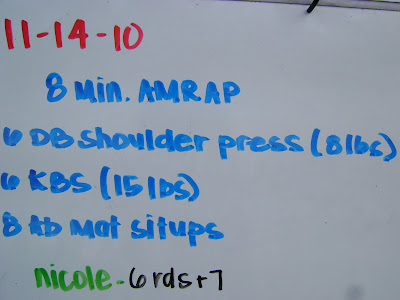 11-14-10
8 Min. AMRAP
6 DB shoulder press (8lbs)
6 KBS (15 lbs)
8 Ab Mat situps
nicole - 6 rds + 7